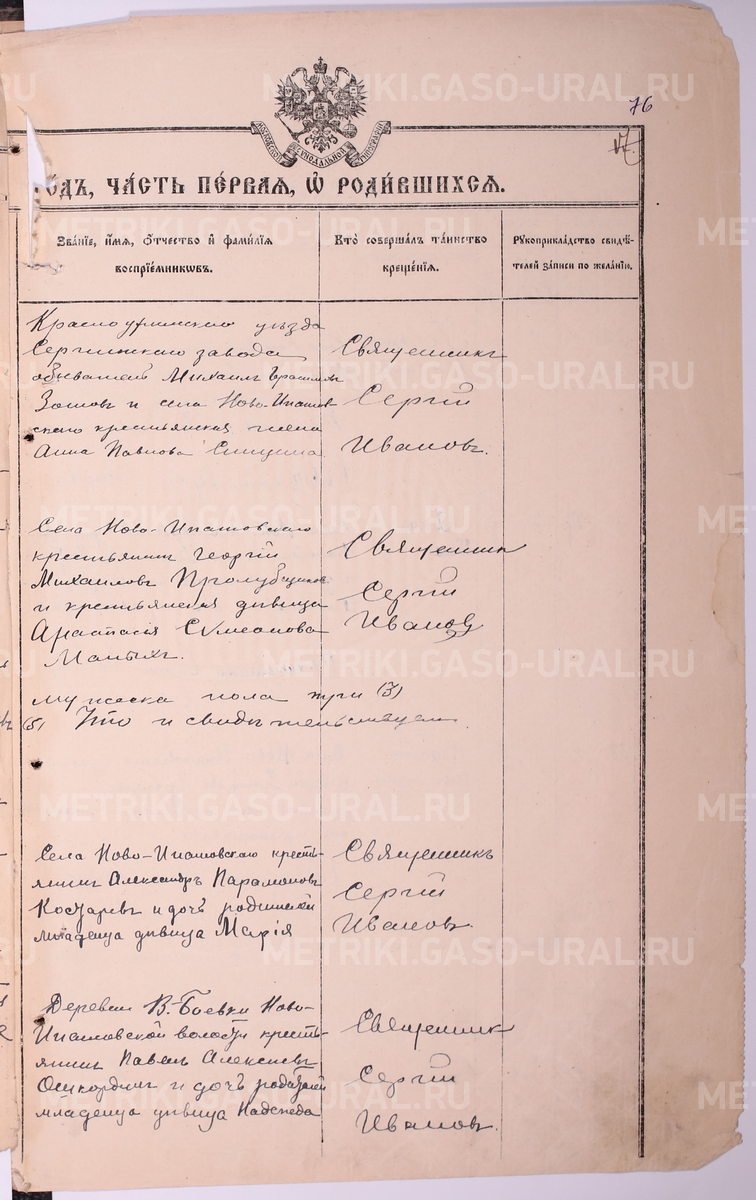 METRIKI.GASO-URAL.RU
76
МОСКОВСКОЙ СУНОДАЛЬНОЙ ТИПОГРАФІИ
ОДЪ, ЧА́СТЬ ПЕ́РВАЯ, Ѡ РОДИ́ВШИХСЯ.
Зва́нїе, и́мя, о́тчество и҆ фами́лїя
воспрїе́мникѡвъ.
Кто̀ соверша́лъ та́инство
креще́нїя.
Рꙋкоприкла́дство свидѣ́-
телей за́писи по жела́нїю.
Красноуфимскаго уѣзда
Сергинскаго завода
обыватель Михаилъ
Зотовъ и села Ново-Ипатов-
скаго крестьянская жена
Анна Павлова
Священникъ
Сергій
Ивановъ.
Села Ново-Ипатовскаго
крестьянинъ Георгій
Михайловъ Пролубщиковъ
и крестьянская дѣвица
Анастасія Сѵмеонова
Малыхъ.
Священникъ
Сергій
Ивановъ
мужеска пола три (3)
(5) Что и свидѣтельствуемъ.
Села Ново-Ипатовскаго кресть-
янинъ Александръ Парамоновъ
Костаревъ и дочь родителей
младенца дѣвица Марія
Священникъ
Сергій
Ивановъ.
Деревни В.-Боевки Ново-
Ипатовской волости кресть-
янинъ Павелъ Алексѣевъ
и дочь родителей
младенца дѣвица Надежда
Священникъ
Сергій
Ивановъ.